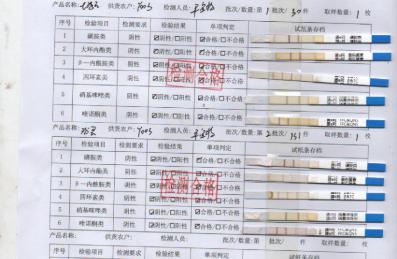 产品名称: 供货农户: 7005 检测人员: 批次/数量:第 1 批次/ 30 件 取样数量: 1 枚
序号 检验项目 检测要求 检验结果 单项判定 试纸条存档
1 磺胺类 阴性 ☑阴性/□阳性 ☑合格/□不合格
2 大环内酯类 阴性 ☑阴性/□阳性 ☑合格/□不合格
3 β一内酰胺类 阴性 ☑阴性/□阳性 ☑合格/□不合格
4 四环素类 阴性 ☑阴性/□阳性 ☑合格/□不合格
检测合格
5 硝基咪唑类 阴性 ☑阴性/□阳性 ☑合格/□不合格
6 喹诺酮类 阴性 ☑阴性/□阳性 ☑合格/□不合格
产品名称: 供货农户: 7005 检测人员: 批次/数量:第 批次/ 151 件 取样数量: 1 枚
序号 检验项目 检测要求 检验结果 单项判定 试纸条存档
1 磺胺类 阴性 ☑阴性/□阳性 ☑合格/□不合格
2 大环内酯类 阴性 ☑阴性/□阳性 ☑合格/□不合格
3 β一内酰胺类 阴性 ☑阴性/□阳性 ☑合格/□不合格
检测合格
4 四环素类 阴性 ☑阴性/□阳性 ☑合格/□不合格
5 硝基咪唑类 阴性 ☑阴性/□阳性 ☑合格/□不合格
6 喹诺酮类 阴性 ☑阴性/□阳性 ☑合格/□不合格
产品名称: 供货农户: 检测人员: 批次/数量:第 批次/ 件 取样数量: 枚
序号 检验项目 检测要求 检验结果 单项判定 试纸条存档